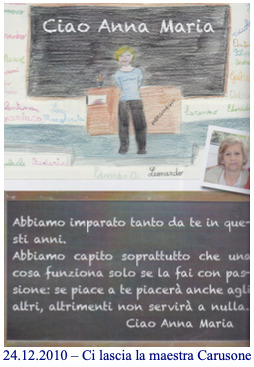 Ciao Anna Maria
Leonardo
Abbiamo imparato tanto da te in que-
sti anni.
Abbiamo capito soprattutto che una
cosa funziona solo se la fai con pas-
sione: se piace a te piacerà anche agli
altri, altrimenti non servirà a nulla.
Ciao Anna Maria
24.12.2010 – Ci lascia la maestra Carusone